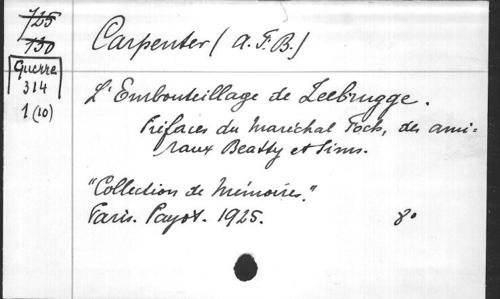 725
130
Guerre
314
1 (10)
Carpenter (A.F.B.)
L'Embouteillage de Zeebrugge.
Préfaces du Maréchal Foch, des ami-
raux Beatty et Sims.
"Collection de Mémoires."
Paris. Payot. 1925. 8°